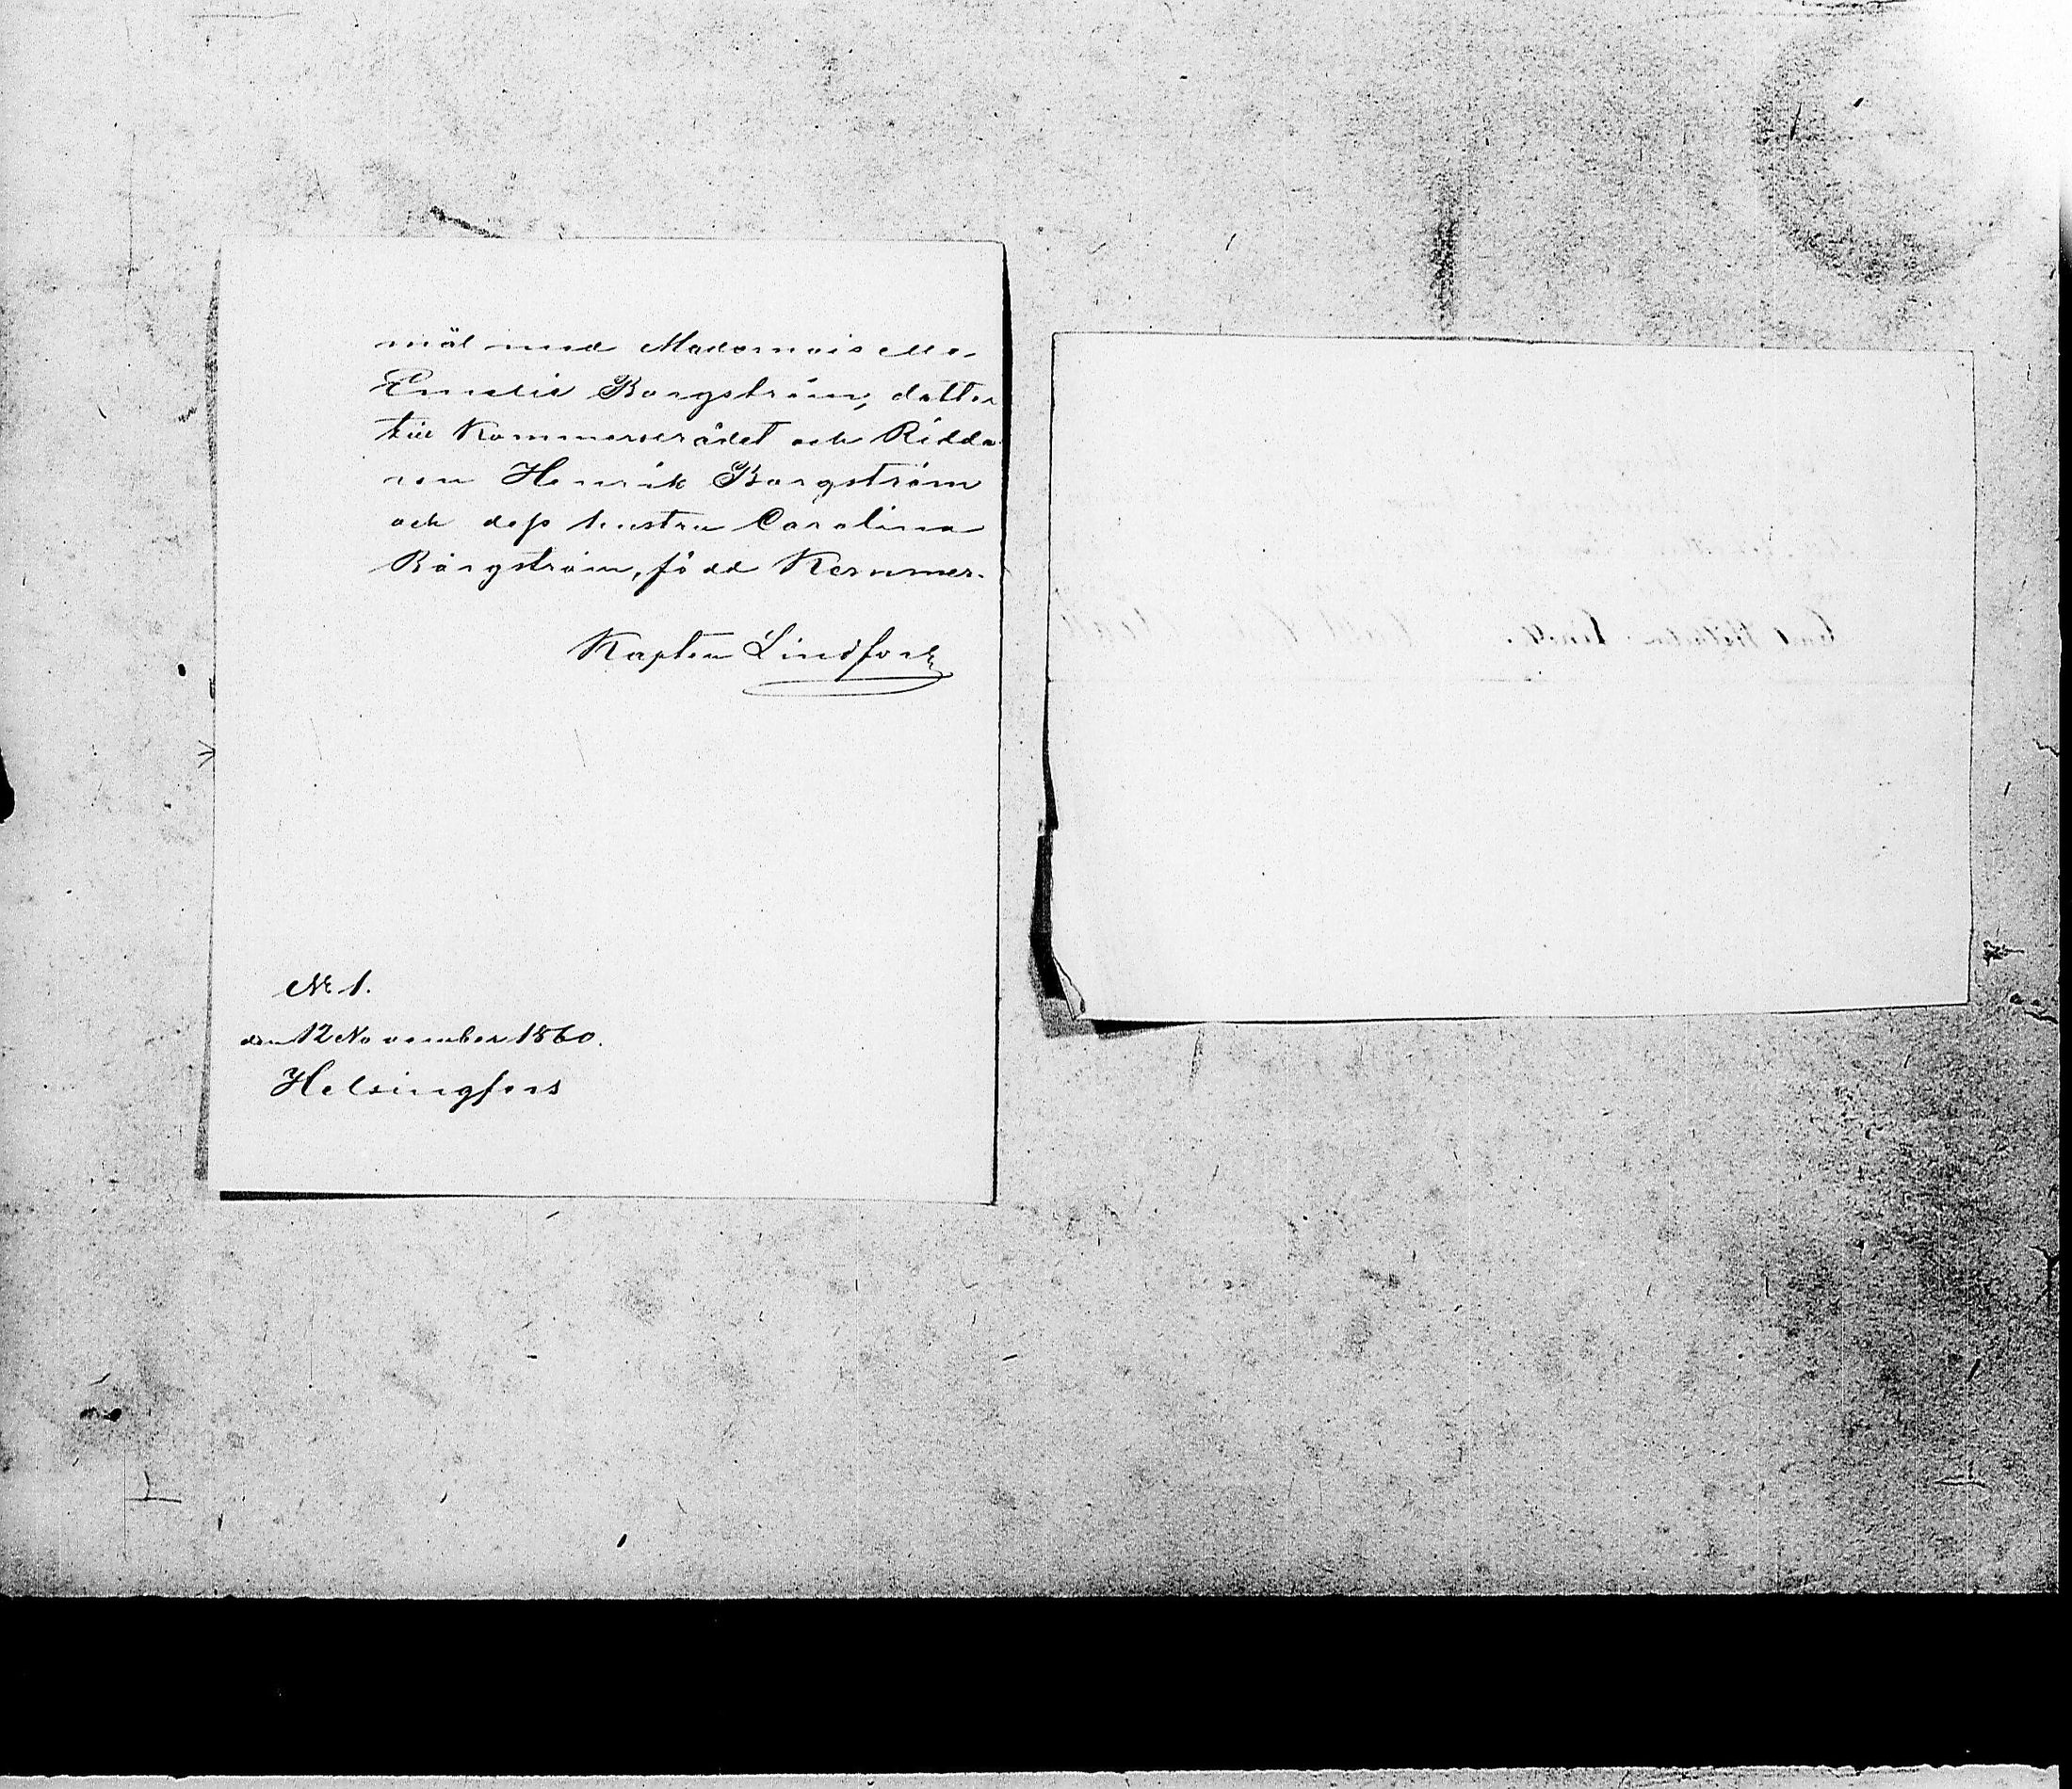 mål med Mademoiselle
Emelie Borgström, dotter
till Kommerserådet och Ridda-
ren Henrik Borgström
och dess hustru Carolina
Borgström, född Kernmer.
Kapten Lindfors
№ 1.
den 12 November 1860.
Helsingfors